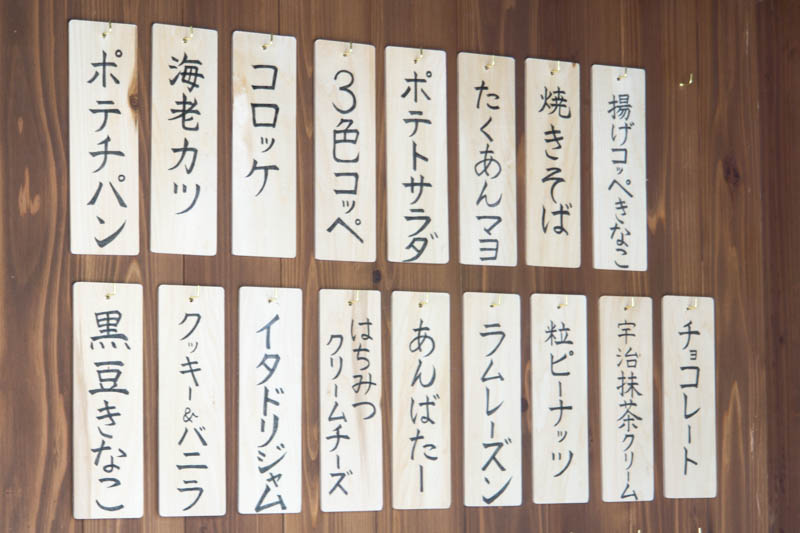 揚げコッペきなこ
焼きそば
たくあんマヨ
ポテトサラダ
3色コッペ
コロッケ
海老カツ
ポテチパン
チョコレート
宇治抹茶クリーム
粒ピーナッツ
ラムレーズン
あんばたー
はちみつ
クリームチーズ
イタドリジャム
クッキー&バニラ
黒豆きなこ